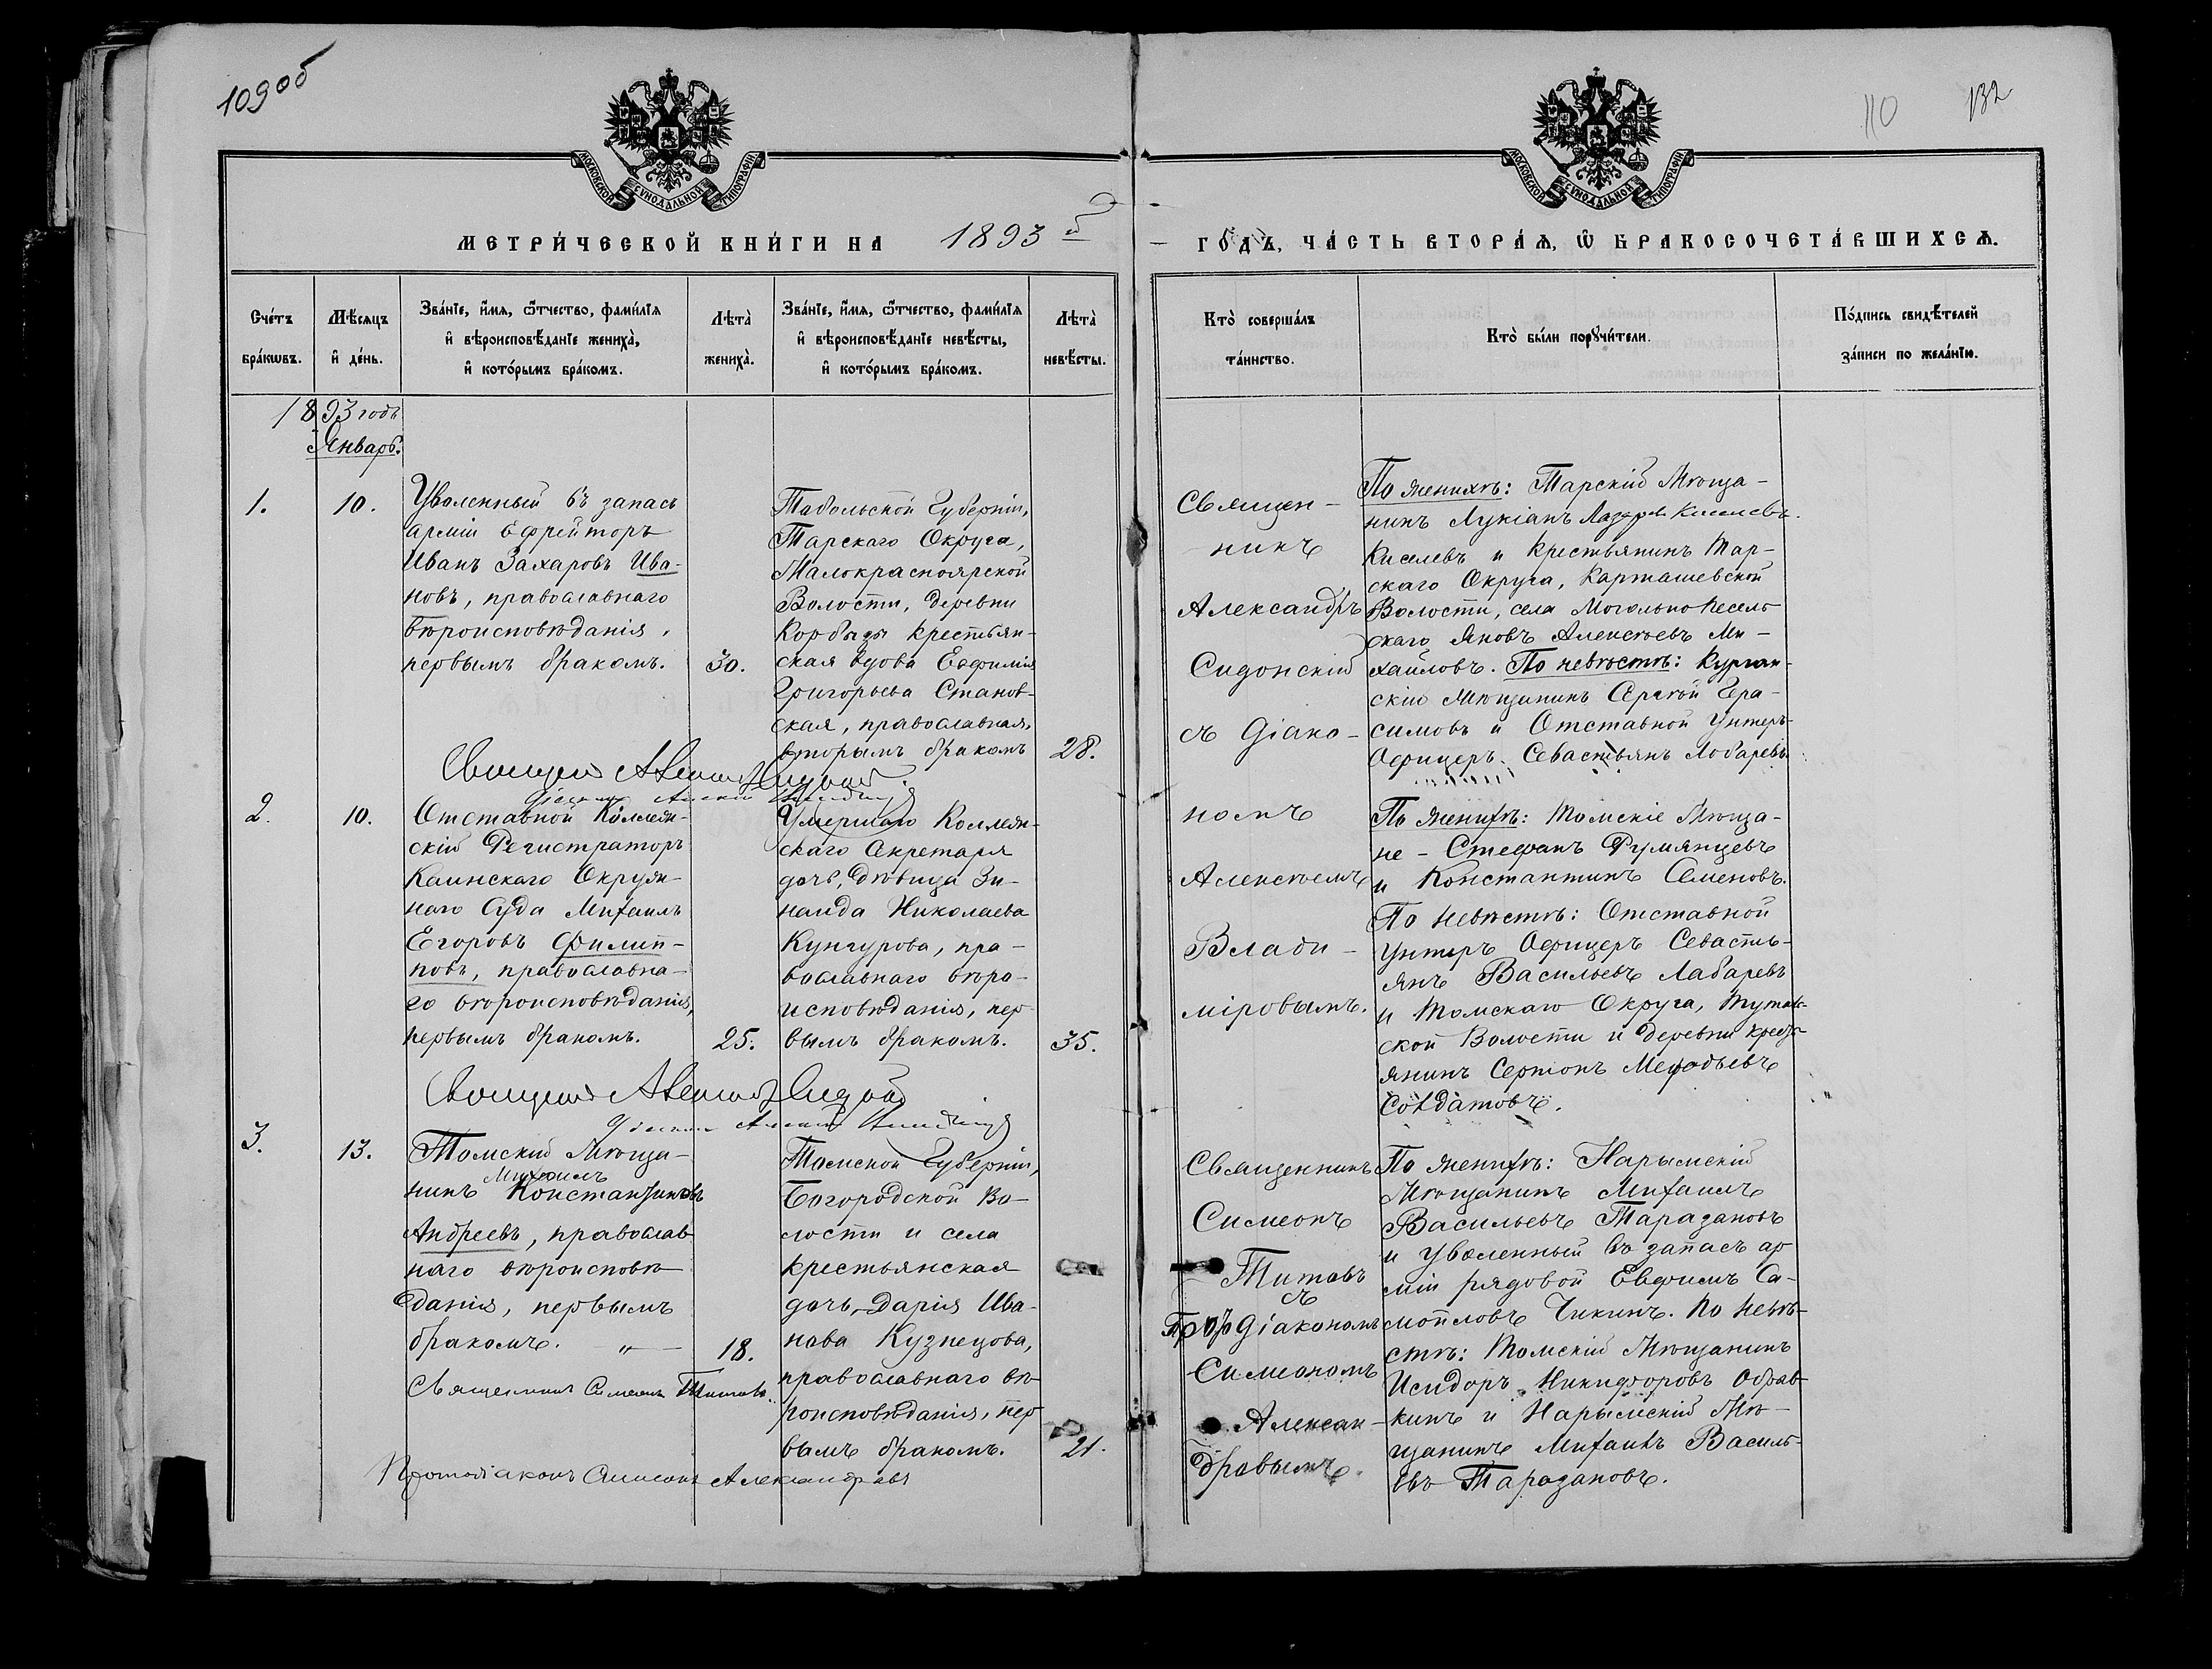 109об
110
132
МОСКОВСКОЙ СѴНОДАЛЬНОЙ ТИПОГРАФІИ
МОСКОВСКОЙ СѴНОДАЛЬНОЙ ТИПОГРАФІИ
МЕТРИ́ЧЕСКОЙ КНИ́ГИ НА 1893 й
ГО́ДЪ, ЧА́СТЬ ВТОРА́Ѧ, Ѽ БРАКОСОЧЕТА́ВШИХСѦ.
Сче́тъ бра́кѡвъ.
Мѣ́сяцъ и҆ де́нь.
Зва́нїе, и҆́мѧ, ѻ҆́тчество, фами́лїѧ
и҆ вѣроисповѣ́данїе жениха̀,
и҆ кото́рымъ бра́комъ.
Лѣта̀ жениха̀.
Зва́нїе, и҆́мѧ, ѻ҆́тчество, фами́лїѧ
и҆ вѣроисповѣ́данїе невѣ́сты,
и҆ кото́рымъ бра́комъ.
Лѣта̀ невѣ́сты.
Кто̀ соверша́лъ та́инство.
Кто̀ бы́ли порꙋчи́тели.
По́дпись свидѣ́телей за́писи по жела́нїю.
1893 годъ
Январь.
1.
10.
Уволенный въ запасъ
арміи Ефрейторъ
Иванъ Захаровъ Ива-
новъ, православнаго
вѣроисповѣданія,
первымъ бракомъ.
30.
Тобольской Губерніи,
Тарскаго Округа,
Малокрасноярской
Волости, деревни
Корбыды крестьян-
ская вдова Евфимія
Григорьева Станов-
ская, православная,
вторымъ бракомъ
28.
Священ-
никъ
Александръ
Сидонскій
съ Діако-
номъ
Алексѣемъ
Влади-
міровымъ.
По женихѣ: Тарскій Мѣща-
нинъ Лукіанъ Лазарев Киселевъ.
Киселевъ и крестьянинъ Тар-
скаго Округа, Карташевской
Волости, села
скаго Яковъ Алексѣевъ Ми-
хайловъ. По невѣстѣ: Курган-
скій Мѣщанинъ Сергѣй Гера-
симовъ и Отставной Унтеръ-
Офицеръ Севастьянъ Лобаревъ.
2.
10.
Отставной Коллеж-
скій Регистраторъ
Каинскаго Окруж-
наго Суда Михаилъ
Егоровъ Филип-
повъ, православна-
го вѣроисповѣданія,
первымъ бракомъ.
25.
Умершаго Коллеж-
скаго Секретаря
дочь, дѣвица Зи-
наида Николаева
Кунгурова, пра-
вославнаго вѣро-
исповѣданія, пер-
вымъ бракомъ.
35.
По женихѣ: Томскіе Мѣща-
не - Стефанъ Румянцевъ
и Константинъ Семеновъ.
По невѣстѣ: Отставной
Унтеръ Офицеръ Севасть-
янъ Васильевъ Лабаревъ
и Томскаго Округа, Туталь-
ской Волости и деревни кресть-
янинъ Сергіонъ Мефодьевъ
Солдатовъ.
3.
13.
Томскій Мѣща-
Михаилъ
нинъ Константиновъ
Андреевъ, православ-
наго вѣроисповѣ-
данія, первымъ
бракомъ. — „ —
18.
Священникъ Симеонъ Титовъ.
Протодіаконъ Симеонъ Александровъ
Томской Губерніи,
Богородской Во-
лости и села
крестьянская
дочь, Дарія Ива-
нова Кузнецова,
православнаго вѣ-
роисповѣданія, пер-
вымъ бракомъ.
21.
Священникъ
Симеонъ
Титовъ
съ
Протодіакономъ
Симеономъ
Алексан-
дровымъ.
По женихѣ: Нарымскій
Мѣщанинъ Михаилъ
Васильевъ Таразановъ
и уволенный въ запасъ ар
міи рядовой Евфимъ Са-
мойловъ Чикинъ. По невѣ-
стѣ: Томскій Мѣщанинъ
Исидоръ Никифоровъ Обрав-
кинъ и Нарымскій Мѣ-
щанинъ Михаилъ Василь-
евъ Таразановъ.